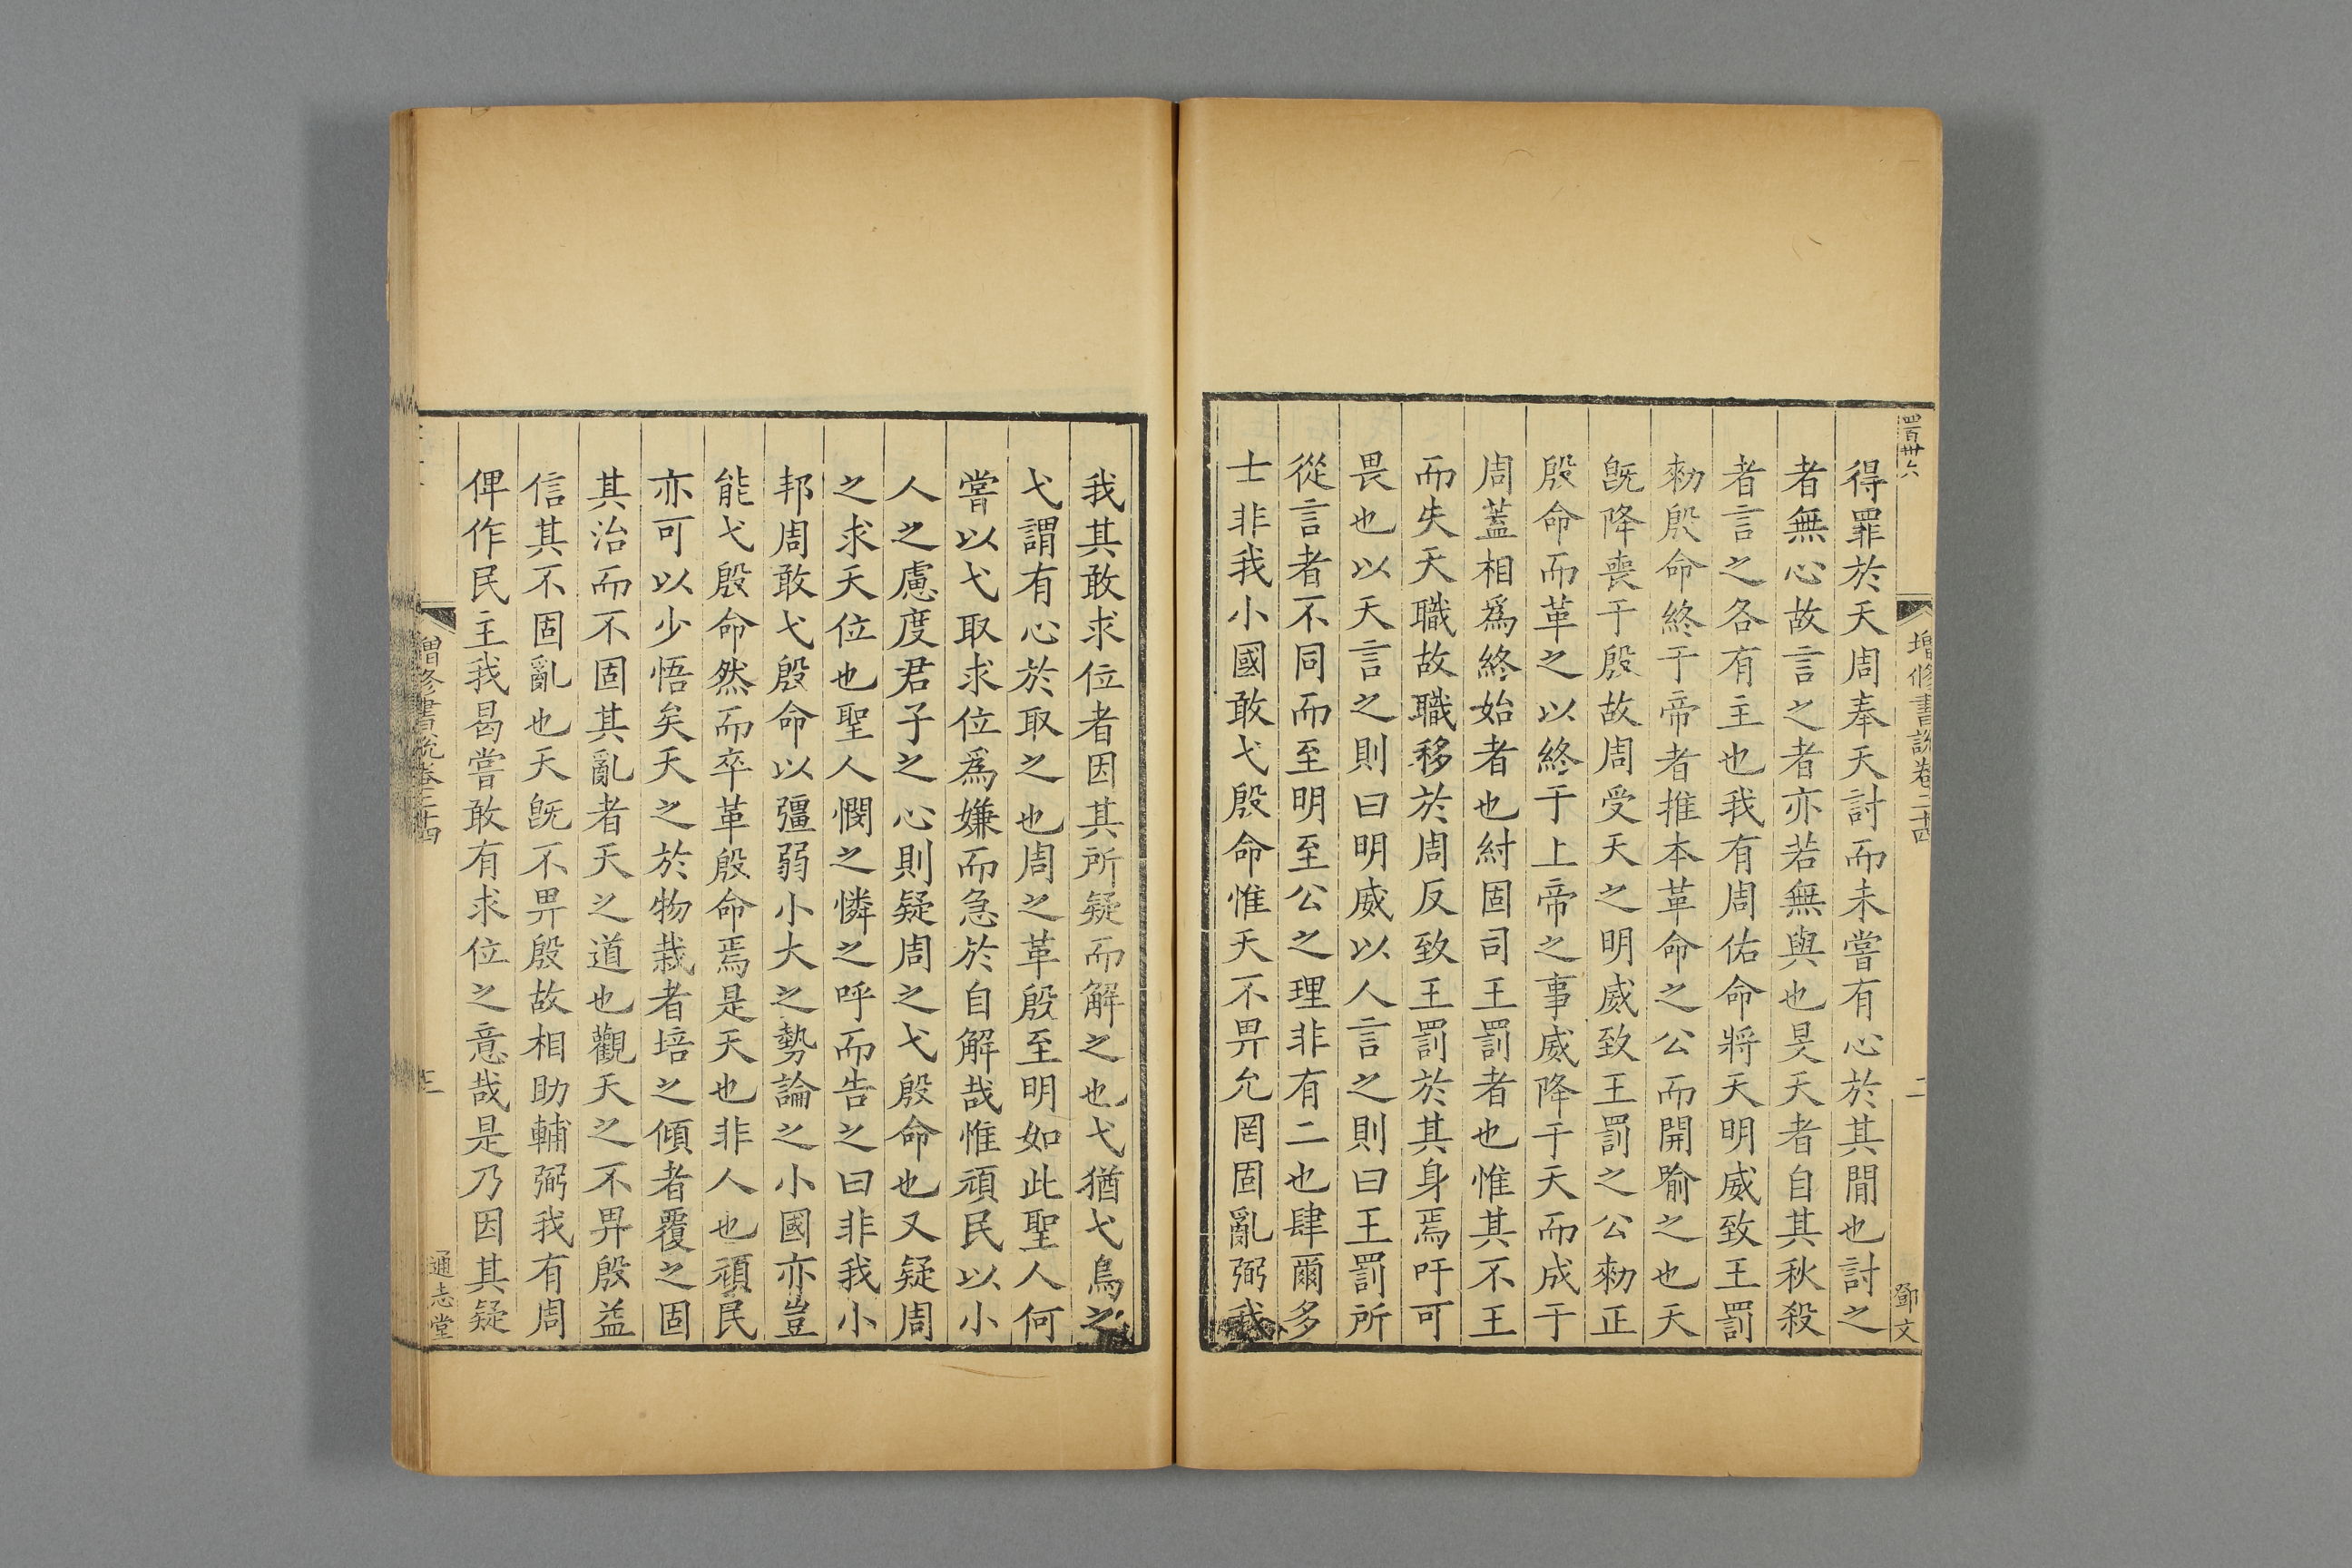 四百卅六
增修書說卷二十四
二
鄧文
得罪於天周奉天討而未嘗有心於其間也討之
者無心故言之者亦若無與也旻天者自其秋殺
者言之各有主也我有周佑命將天明威致王罰
勑殷命終于帝者推本革命之公而開喻之也天
旣降喪于殷故周受天之明威致王罰之公勑正
殷命而革之以終于上帝之事威降于天而成于
周蓋相爲終始者也紂固司王罰者也惟其不王
而失天職故職移於周反致王罰於其身焉吁可
畏也以天言之則曰明威以人言之則曰王罰所
從言者不同而至明至公之理非有二也肆爾多
士非我小國敢弋殷命惟天不畀允罔固亂弼我
我其敢求位者因其所疑而解之也弋猶弋鳥之
弋謂有心於取之也周之革殷至明如此聖人何
嘗以弋取求位爲嫌而急於自解哉惟頑民以小
人之慮度君子之心則疑周之弋殷命也又疑周
之求天位也聖人憫之憐之呼而告之曰非我小
邦周敢弋殷命以彊弱小大之勢論之小國亦豈
能弋殷命然而卒革殷命焉是天也非人也頑民
亦可以少悟矣天之於物栽者培之傾者覆之固
其治而不固其亂者天之道也觀天之不畀殷益
信其不固亂也天旣不畀殷故相助輔弼我有周
俾作民主我曷嘗敢有求位之意哉是乃因其疑
增修書說卷二十四
三
通志堂